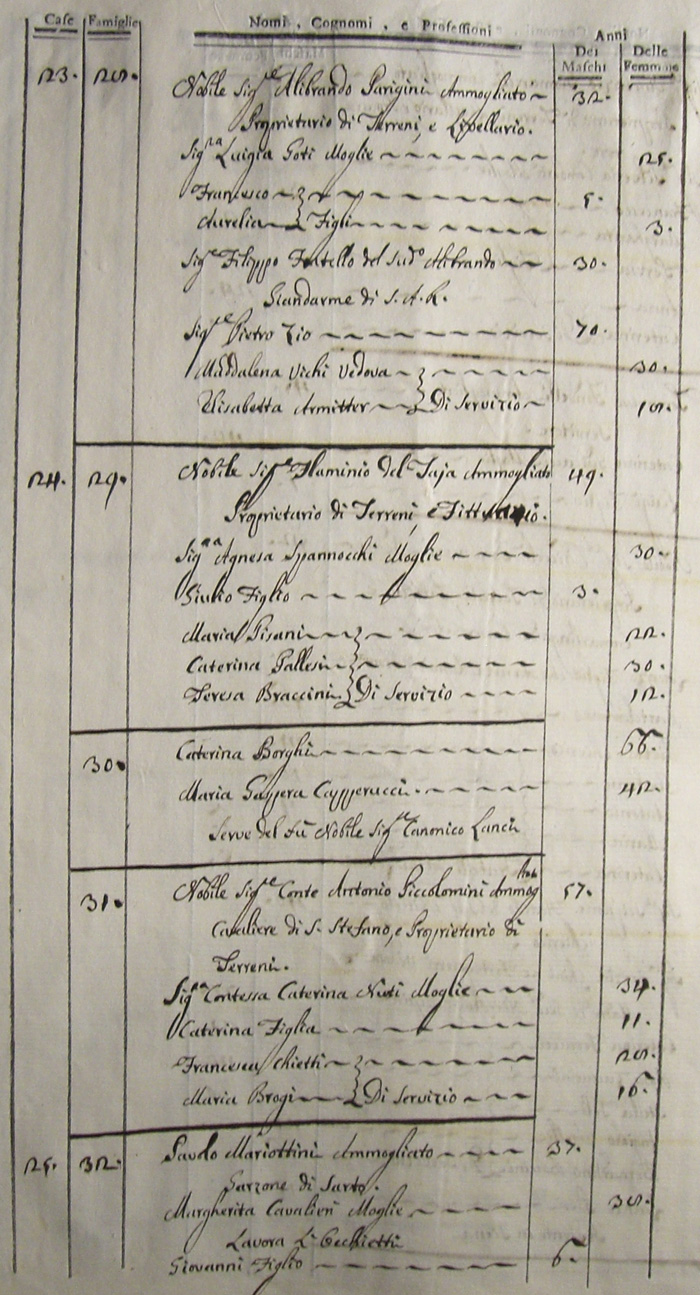 Case Famiglie Nomi, Cognomi, e Professioni Anni
Dei Maschi Delle Femmine
23. 28. Nobile Sig.re Alibrando Parigini Ammogliato 32.
Proprietario di Terreni, e Livellario.
Sig.ra Luigia Goti Moglie 25.
Francesco 5.
Aurelia Figli 3.
Sig.re Filippo Fratello del Sud.o Alibrando 30.
Giandarme di S. A. R.
Sig.re Pietro Zio 70.
Maddalena Vichi Vedova 30.
Elisabetta Armitter Di Servizio
24. 29. Nobile Sig.re Flaminio del Taja Ammogliato 49.
Proprietario di Terreni, e
Sig.ra Agnesa Spannocchi Moglie 30.
Giulio Figlio 3.
Maria Pisani 22.
Caterina Gallesi 30.
Teresa Braccini Di Servizio 12.
30. Caterina Borghi 66.
Maria Gaspera Capperucci 42.
Serve del fù Nobile Sig.re Canonico Lanci
31. Nobile Sig.re Conte Antonio Piccolomini Ammog 57.
Cavaliere di S. Stefano, e Proprietario di
Terreni.
Sig.ra Contessa Caterina Nuti Moglie 34.
Caterina Figlia 11.
Francesca Chietti 28.
Maria Brogi Di Servizio 16.
25. 32. Paolo Mariottini Ammogliato 37.
Garzone di Sarto.
Margherita Cavalieri Moglie 38.
Lavora
Giovanni Figlio 6.